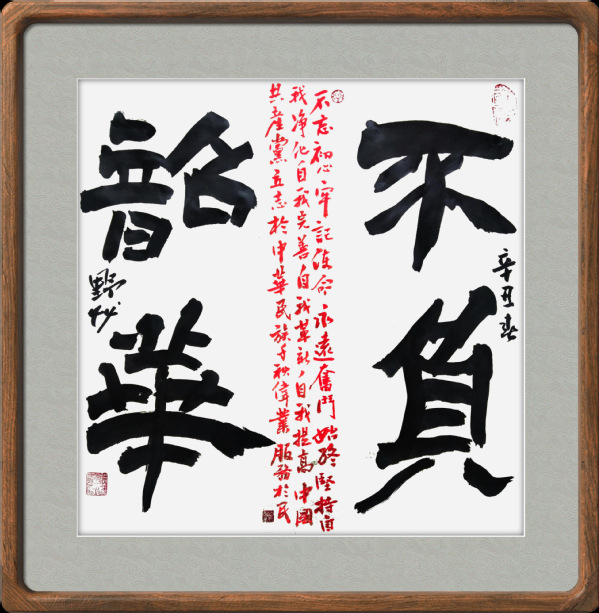 不負
辛丑春
不忘初心牢記使命永遠奮鬥始終堅持自
我净化自我完善自我革新、自我提高中國
共產黨立志於中華民族千秋偉業服務於民
韶華
野